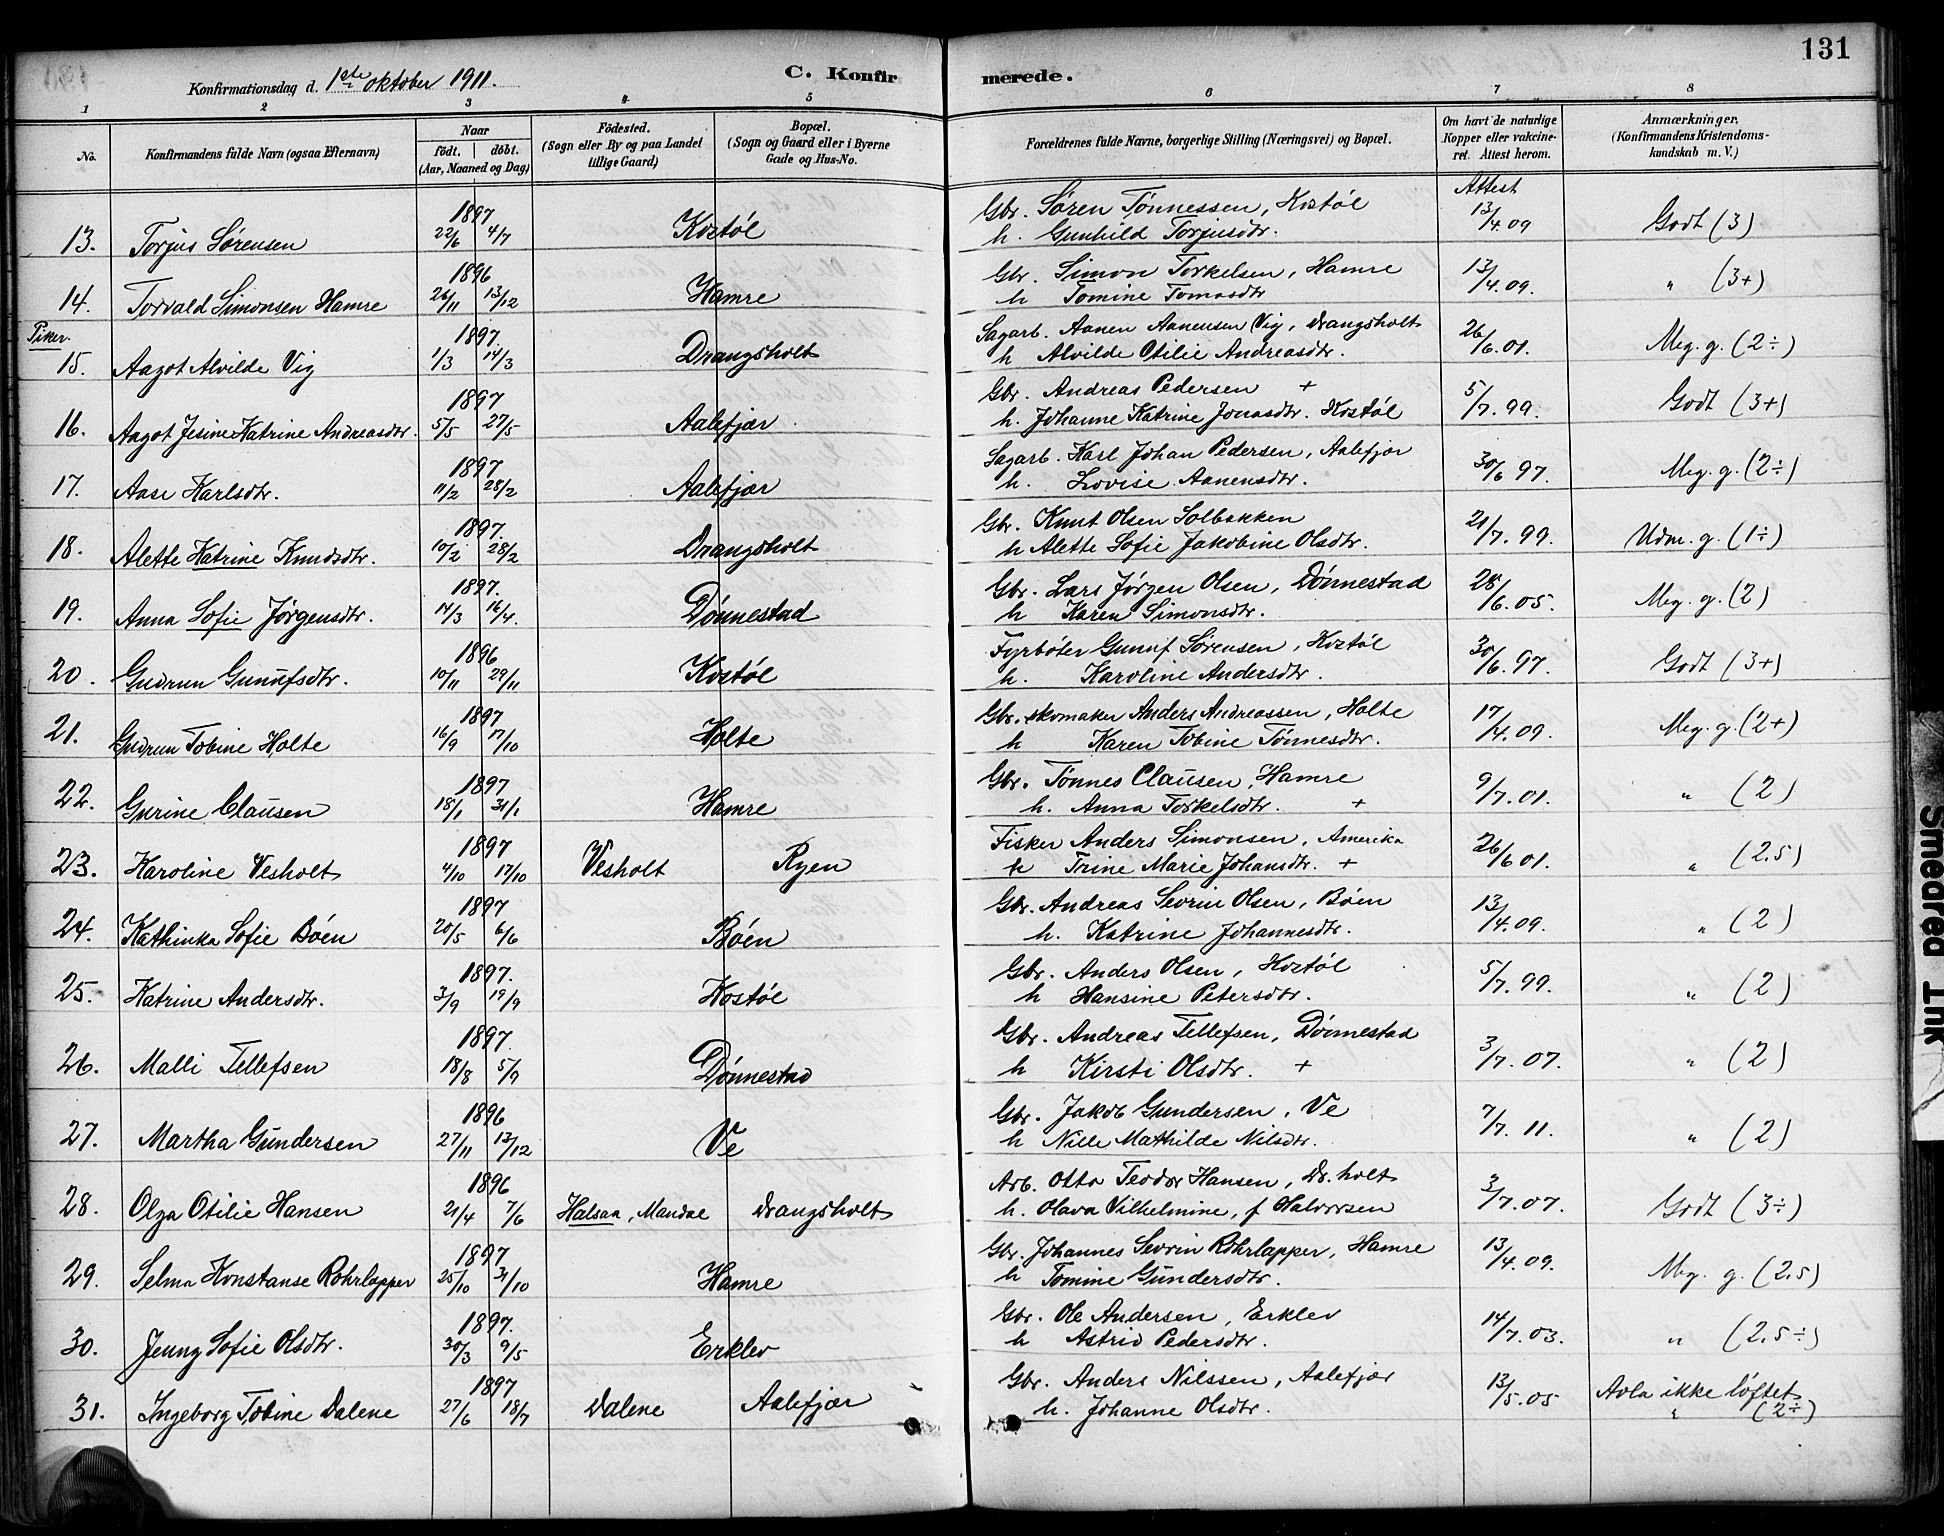 131
Konfirmationsdag d. 1ste oktober 1911.
C. Konfirmerede.
1 2 3 4 5 6 7 8
No.
Konfirmandens fulde Navn (ogsaa Efternavn)
Naar
født. | døbt.
(Aar, Maaned og Dag)
Fødested.
(Sogn eller By og paa Landet
tillige Gaard)
Bopæl.
(Sogn og Gaard eller i Byerne
Gade og Hus-No.
Forældrenes fulde Navne, borgerlige Stilling (Næringsvei) og Bopæl.
Om havt de naturlige
Kopper eller vakcine-
ret. Attest herom.
Anmærkninger.
(Konfirmandens Kristendoms-
kundskab m. V.)
Attest
13. Torjus Sørensen 1897 22/6 4/7 Kostøl Gbr. Søren Tønnessen, Kostøl 13/4.09 Godt (3)
h. Gunhild Torjusdtr.
14. Torvald Simonsen Hamre 1896 26/11 13/12 Hamre Gbr. Simon Torkelsen, Hamre 13/4.09. " (3+)
h Tomine Tomasdtr
Piker.
15. Aagot Alvilde Vig 1897. 1/3 14/3 Drangsholt Sagarb. Aanen Aanensen Vig, Drangsholt 26/6.01. Meg. g. (2÷)
h Alvilde Otilie Andreasdtr.
16. Aagot Jesine Katrine Andreasdtr. 1897 5/5 27/5 Aalefjær Gbr. Andreas Pedersen + 5/7.99. Godt (3+)
h. Johanne Katrine Jonasdtr. Kostøl
17. Aase Karlsdtr. 1897 11/2 28/2 Aalefjær Sagarb. Karl Johan Pedersen, Aalefjær 30/6 97. Meg. g. (2÷)
h. Lovise Aanensdtr.
18. Alette Katrine Knudsdtr. 1897. 10/2 28/2 Drangsholt Gbr. Knut Olsen Solbakken 21/7.99. Udm. g. (1÷)
h Alette Sofie Jakobine Olsdtr.
19. Anna Sofie Jørgensdtr. 1897. 14/3 16/4. Dønnestad Gbr. Lars Jørgen Olsen, Dønnestad 28/6.05. Meg. g. (2)
h Karen Simonsdtr.
20. Gudrun Gunufsdtr. 1896 10/11 29/11 Kostøl Fyrbøter Gunuf Sørensen, Kostøl 30/6.97. Godt (3+)
h. Karoline Andersdtr.
21. Gudrun Tobine Holte 1897 16/9 17/10 Holte Gbr. skomaker Anders Andreassen, Holte 17/4.09. Meg. g. (2+)
h Karen Tobine Tønnesdtr.
22. Gurine Clausen 1897 18/1 31/1 Hamre Gbr. Tønnes Clausen, Hamre 9/7.01. " (2)
h. Anna Torkelsdtr. +
23. Karoline Vesholt 1897 4/10 17/10 Vesholt Ryen Fisker Anders Simonsen, Amerika 26/6 01. " (2.5)
h Trine Marie Johansdtr. +
24. Kathinka Sofie Bøen 1897 20/5 6/6 Bøen Gbr. Andreas Sevrin Olsen, Bøen 13/4.09. " (2)
h. Katrine Johannesdtr.
25. Katrine Andersdtr. 1897. 3/9 19/9 Kostøl Gbr. Anders Olsen, Kostøl 5/7.99. " (2)
h Hansine Petersdtr.
26. Malli Tellefsen 1897. 18/8 5/9 Dønnestad Gbr. Andreas Tellefsen, Dønnestad 3/7.07. " (2)
h Kirsti Olsdtr. +
27. Martha Gundersen 1896 27/11 13/12 Ve Gbr. Jakob Gundersen, Ve 7/7.11. " (2)
h Nille Mathilde Nilsdtr.
28. Olga Otilie Hansen 1896 21/4 7/6 Halsaa, Mandal Drangsholt Arb. Otto Teodor Hansen, Dr.holt 3/7.07. Godt (3÷)
h. Olava Vilhelmine, f Halvorsen
29. Selma Konstanse Rohrlapper 1897 25/10 31/10 Hamre Gbr. Johannes Sevrin Rohrlapper, Hamre 13/4.09. Meg. g. (2,5)
h Tomine Gundersdtr.
30. Jenny Sofie Olsdtr. 1897. 30/3 9/5 Erklev Gbr. Ole Andersen, Erklev 14/7.03. " (2.5÷)
h Astrid Pedersdtr.
31. Ingeborg Tobine Dalene 1897 27/6 18/7 Dalene Aalefjær Gbr. Anders Nilssen, Aalefjær 13/5.05 Avla ikke løftet
h. Johanne Olsdtr. " (2÷)
Smeared Ink